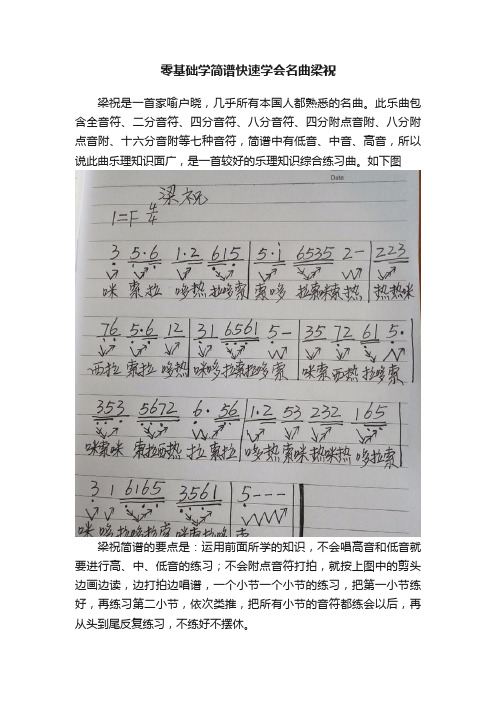 零基础学简谱快速学会名曲梁祝
梁祝是一首家喻户晓，几乎所有本国人都熟悉的名曲。此乐曲包
含全音符、二分音符、四分音符、八分音符、四分附点音附、八分附
点音附、十六分音附等七种音符，简谱中有低音、中音、高音，所以
说此曲乐理知识面广，是一首较好的乐理知识综合练习曲。如下图
Date
梁祝
1=F 4/4
3 5·6 1·2 615 | 5·i 6535 2- | 223
咪 索拉 哆热 拉哆索 索哆 拉索咪索 热 热热咪
76 5·6 12 | 31 6561 5- | 35 72 61 5·
西拉 索拉 哆热 咪哆 拉索拉哆 索 咪索 西热 拉哆 索
353 5672 6· 56 | 1·2 53 232 165 |
咪索咪 索拉西热 拉 索拉 哆热 索咪 热咪热 哆拉索
3 1 6165 3561 | 5--- ‖
咪 哆 拉哆拉索 咪索拉哆 索
梁祝简谱的要点是：运用前面所学的知识，不会唱高音和低音就
要进行高、中、低音的练习；不会附点音符打拍，就按上图中的剪头
边画边读，边打拍边唱谱，一个小节一个小节的练习，把第一小节练
好，再练习第二小节，依次类推，把所有小节的音符都练会以后，再
从头到尾反复练习，不练好不摆休。